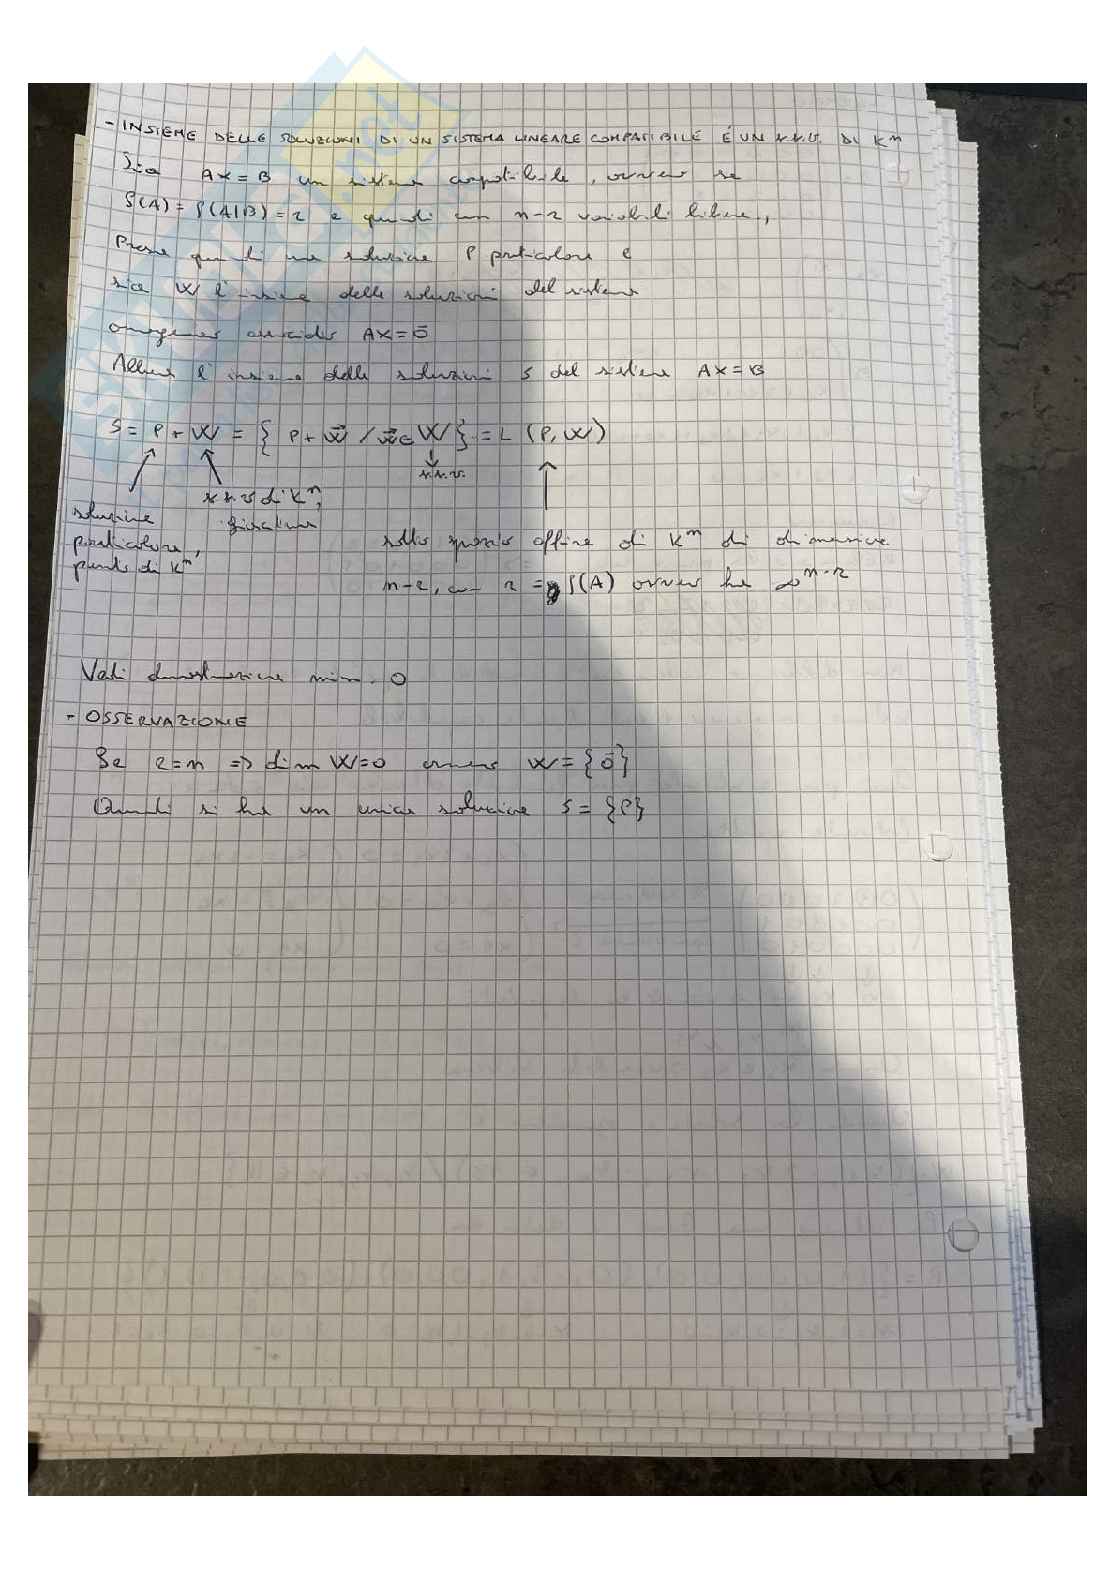 - INSIEME DELLE SOLUZIONI DI UN SISTEMA LINEARE COMPATIBILE É UN s.s.v. DI Kⁿ
Sia AX = B un sistema compatibile, ovvero se
ρ(A) = ρ(A|B) = r e quindi con n-r variabili libere,
Presa quindi una soluzione P particolare e
sia W l'insieme delle soluzioni del sistema
omogeneo associato AX = 0̄
Allora l'insieme delle soluzioni S del sistema AX = B
S = P + W = { P + w⃗ / w⃗ ∈ W } = L (P, W)
s.s.v.
s.s.v di Kⁿ,
giacitura
soluzione
particolare,
punto di Kⁿ
sotto spazio affine di Kⁿ di dimensione
n-r, con r = ρ(A) ovvero ha ∞ⁿ⁻ʳ
Vedi dimostrazione num. 0
- OSSERVAZIONE
Se r = n => dim W = 0 ovvero W = {0̄}
Quindi si ha un unica soluzione S = {P}